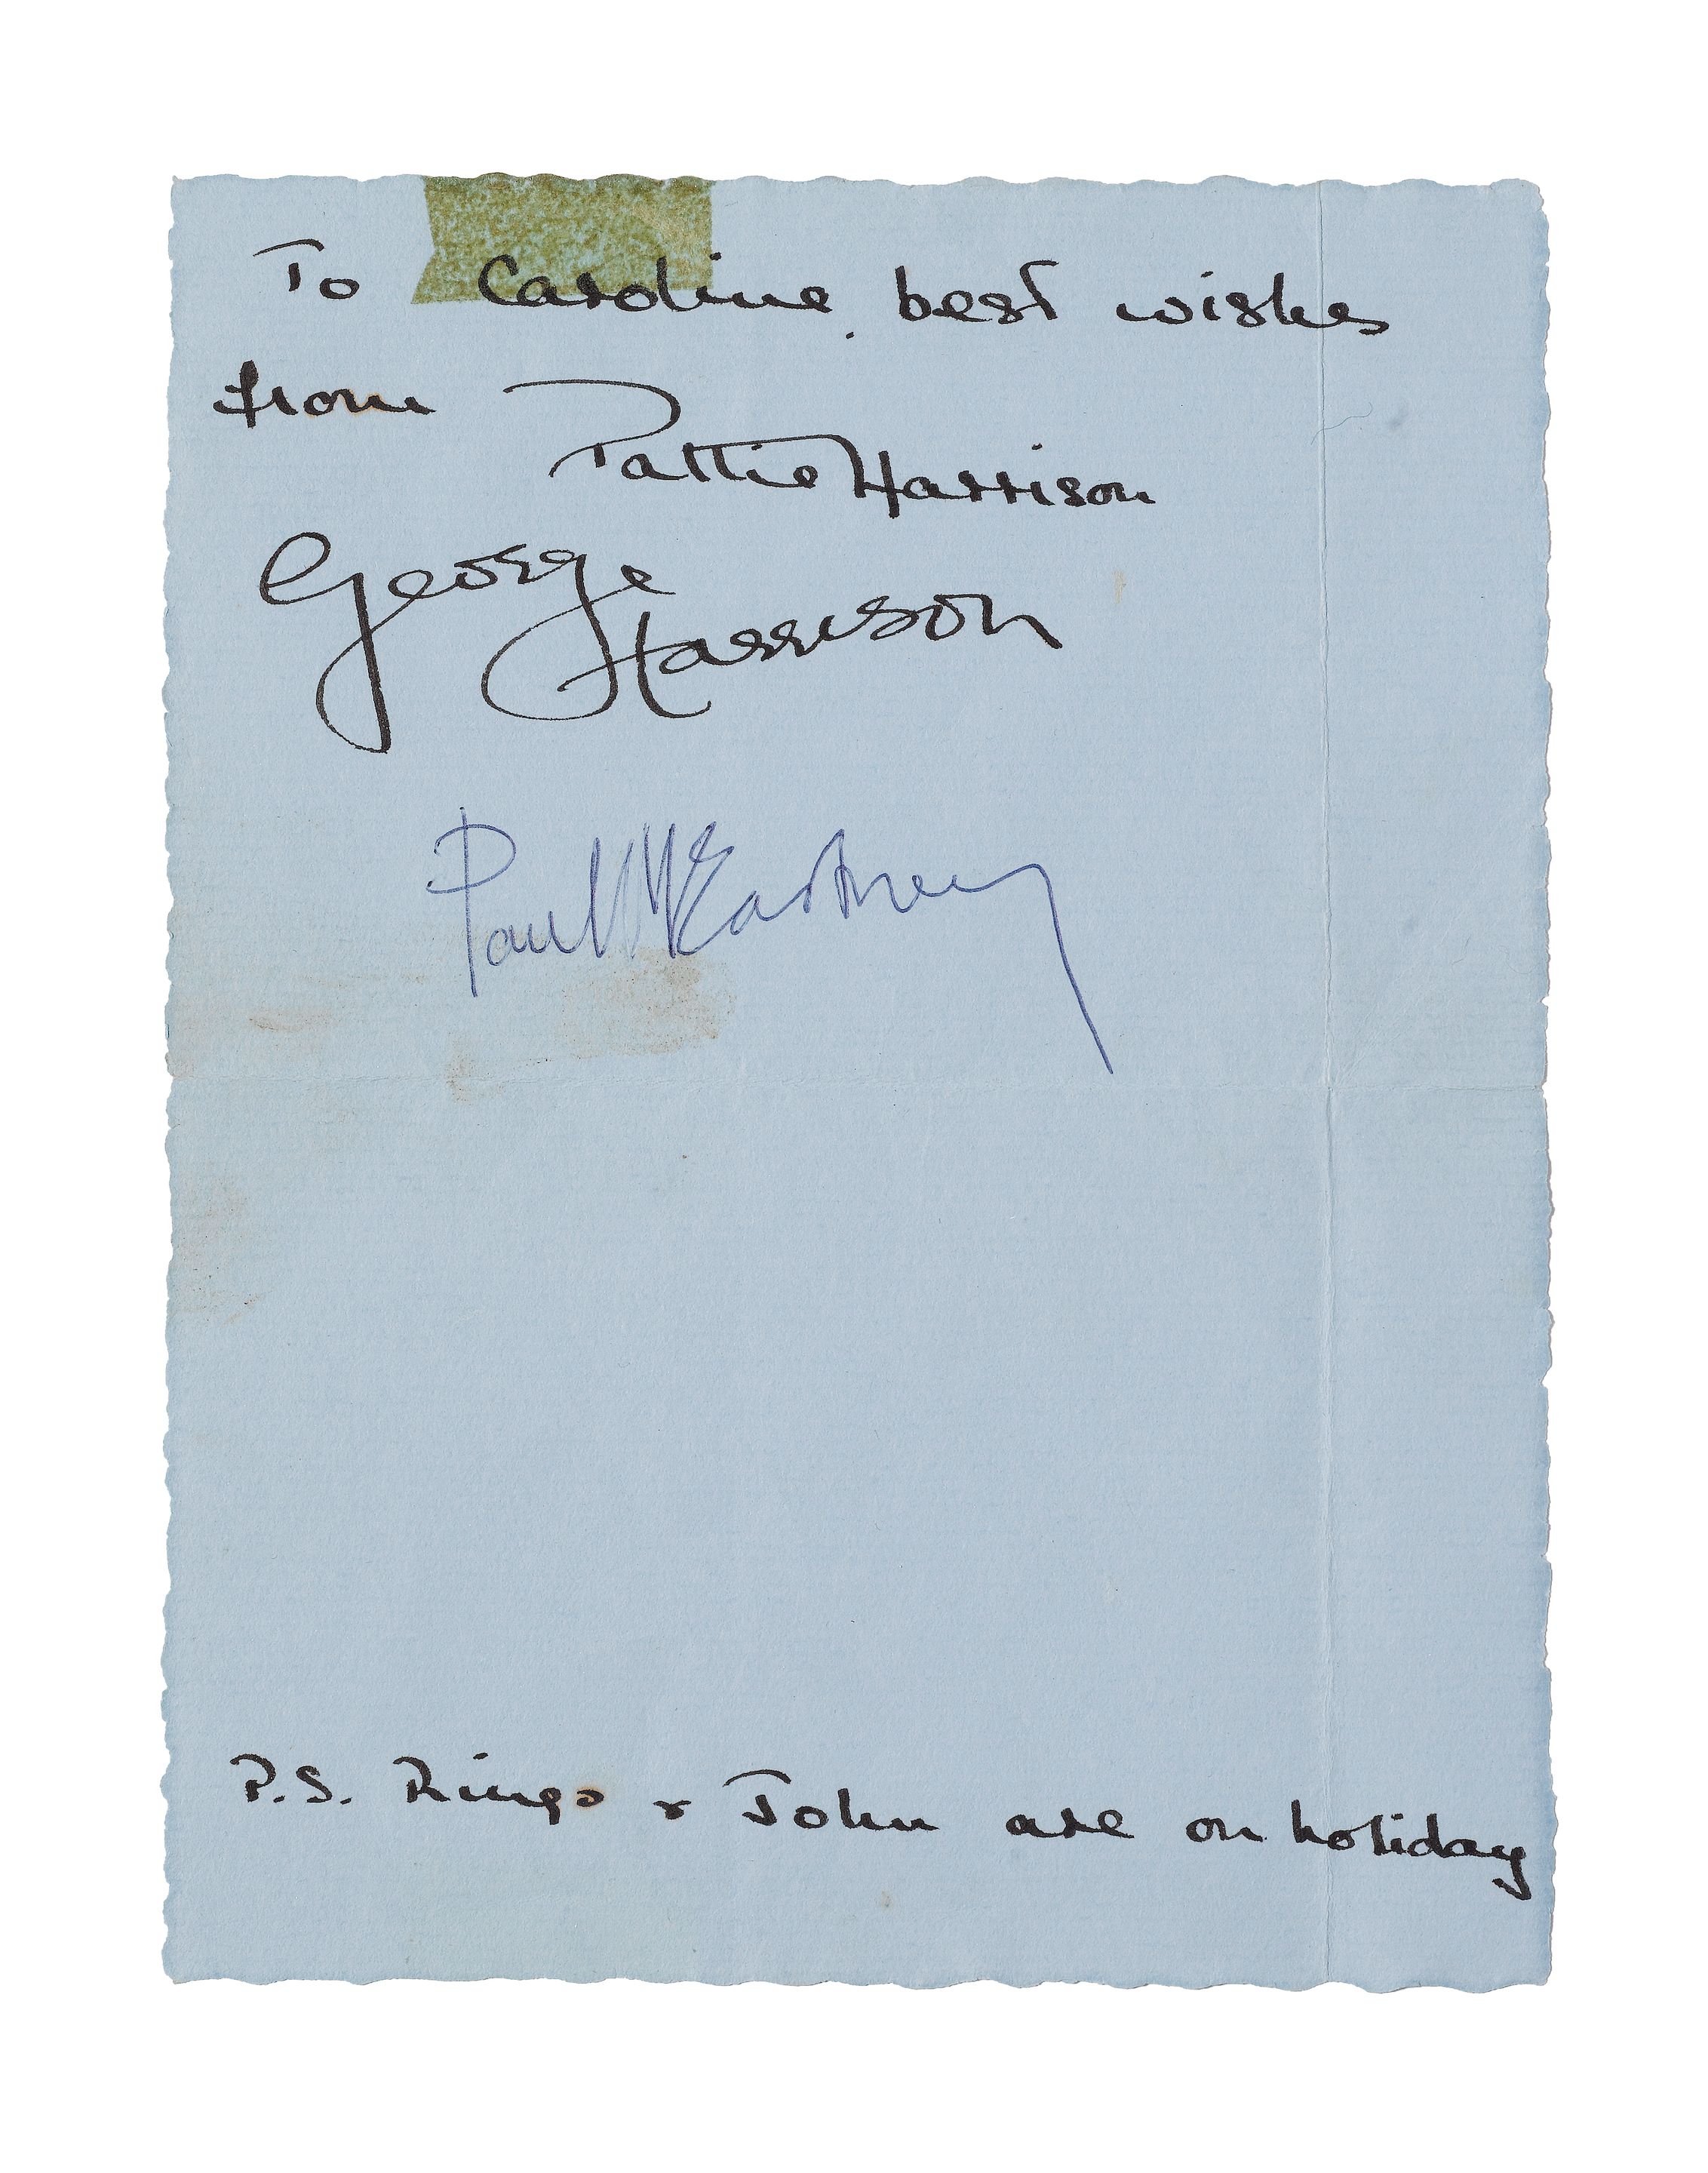 To Caroline, best wishes
from
Pattie Harrison
George
Harrison
Paul McCartney
P.S. Ringo & John are on holiday